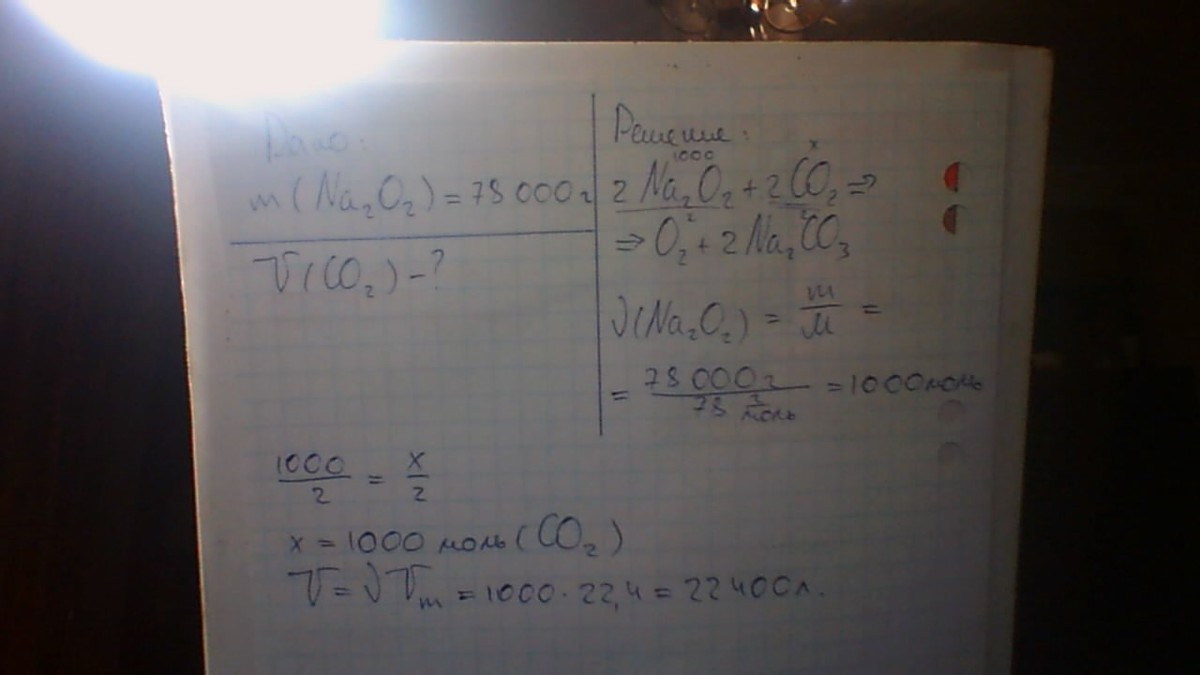 Дано:
m(Na₂O₂) = 78 000 г
V(CO₂) - ?
Решение:
1000 x
2 Na₂O₂ + 2 CO₂ ⇒
2 2
⇒ O₂ + 2 Na₂CO₃
ν(Na₂O₂) = m/M =
= 78 000 г / 78 г/моль = 1000 моль
1000/2 = x/2
x = 1000 моль (CO₂)
V = ν Vm = 1000 · 22,4 = 22 400 л.